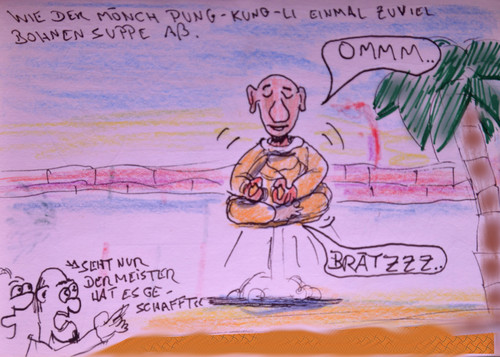 WIE DER MÖNCH PUNG-KUNG-LI EINMAL ZUVIEL
BOHNENSUPPE Aß.
OMMM..
BRÄTZZZ..
SEHT NUR
DER MEISTER
HAT ES GE-
SCHAFFT!!